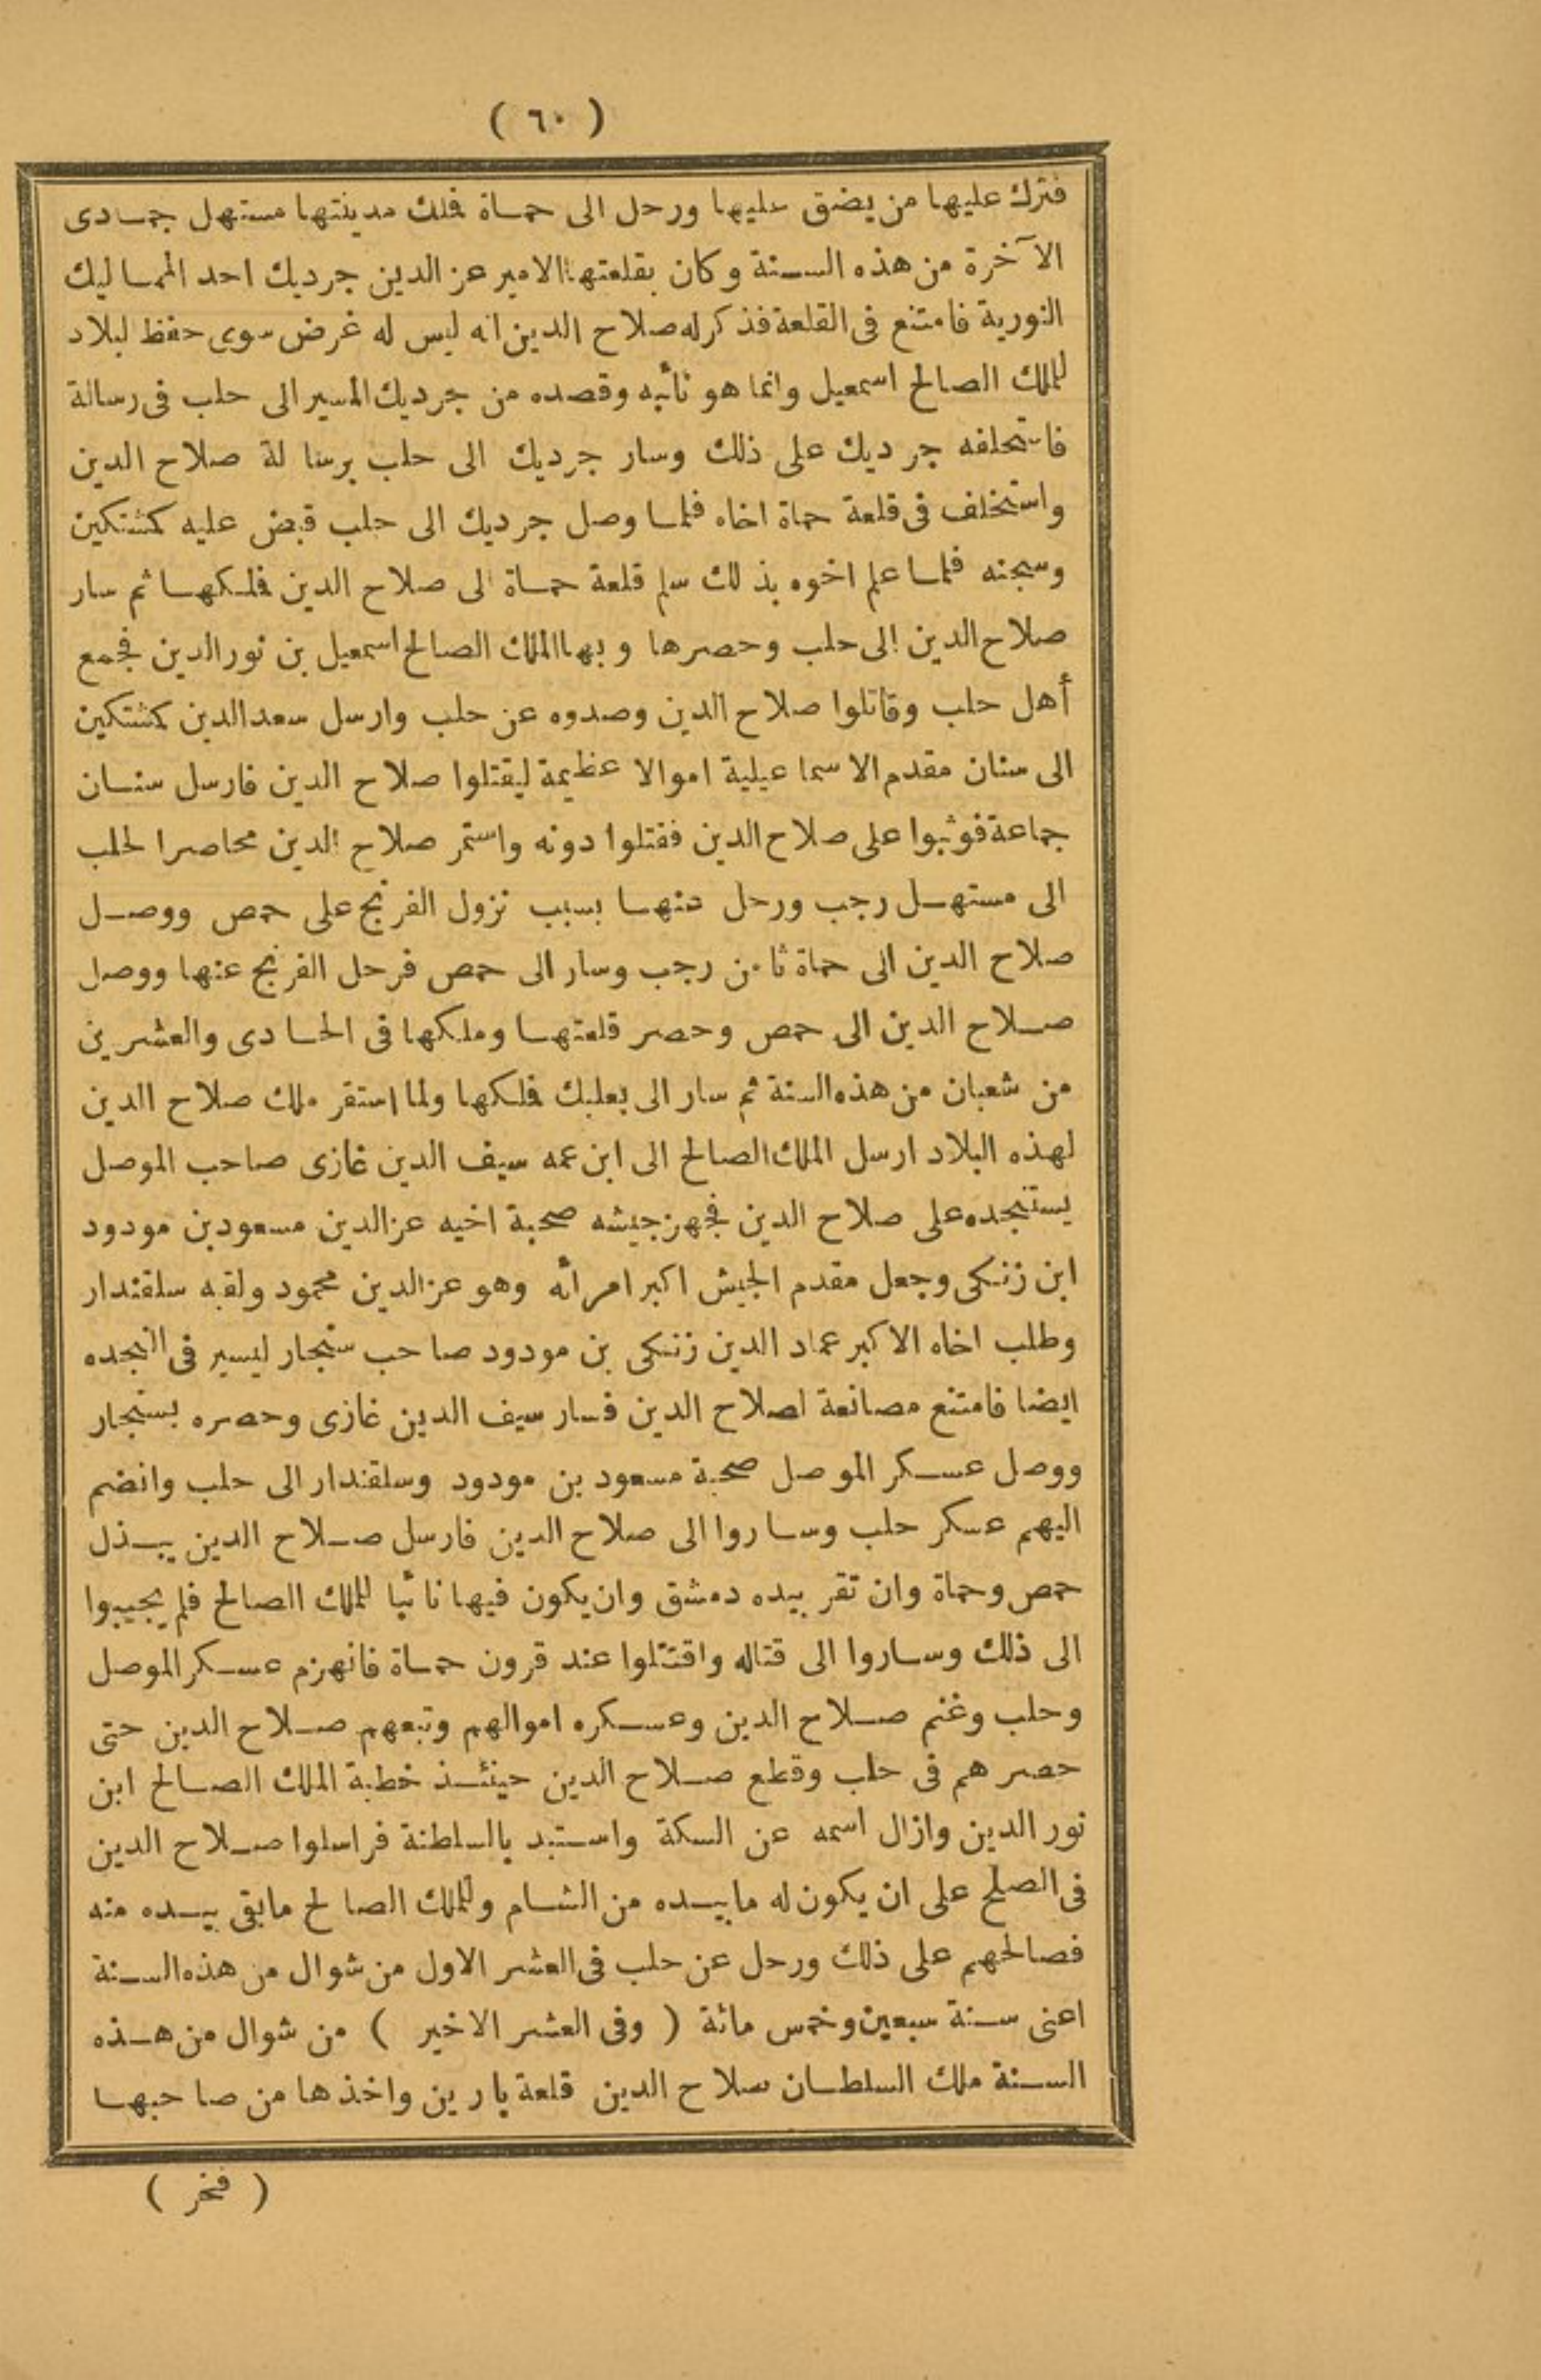 ( ٦٠ )
فترك عليها من يضق عليها ورحل الى حماة فلك مدينتها مستهل جمادى
الآخرة من هذه السنة وكان بقلعتها الامير عز الدين جرديك احد المماليك
النورية فامتنع فى القلعة فذكر له صلاح الدين انه ليس له غرض سوى حفظ لبلاد
للملك الصالح اسمعيل وانما هو نائبه وقصده من جرديك المسير الى حلب فى رسالة
فاستحلفه جرديك على ذلك وسار جرديك الى حلب برسالة صلاح الدين
واستخلف فى قلعة حماة اخاه فلما وصل جرديك الى حلب قبض عليه كمشتكين
وسجنه فلما علم اخوه بذلك سلم قلعة حماة الى صلاح الدين فلكها ثم سار
صلاح الدين الى حلب وحصرها وبها الملك الصالح اسمعيل بن نور الدين فجمع
أهل حلب وقاتلوا صلاح الدين وصدوه عن حلب وارسل سعد الدين كمشتكين
الى سنان مقدم الاسماعيلية اموالا عظيمة ليقتلوا صلاح الدين فارسل سنان
جماعة فوثبوا على صلاح الدين فقتلوا دونه واستمر صلاح الدين محاصرا لحلب
الى مستهل رجب ورحل عنها بسبب نزول الفرنج على حمص ووصل
صلاح الدين الى حماة ثامن رجب وسار الى حمص فرحل الفرنج عنها ووصل
صلاح الدين الى حمص وحصر قلعتها وملكها فى الحادى والعشرين
من شعبان من هذه السنة ثم سار الى بعلبك فلكها ولما استقر ملك صلاح الدين
لهذه البلاد ارسل الملك الصالح الى ابن عمه سيف الدين غازى صاحب الموصل
يستنجده على صلاح الدين فجهز جيشه صحبة اخيه عز الدين مسعود بن مودود
ابن زنكى وجعل مقدم الجيش اكبر امرائه وهو عز الدين محمود ولقبه سلقندار
وطلب اخاه الاكبر عماد الدين زنكى بن مودود صاحب سنجار ليسير فى النجده
ايضا فامتنع مصانعة لصلاح الدين فسار سيف الدين غازى وحصره بسنجار
ووصل عسكر الموصل صحبة مسعود بن مودود وسلقندار الى حلب وانضم
اليهم عسكر حلب وساروا الى صلاح الدين فارسل صلاح الدين يبذل
حمص وحماة وان تقر بيده دمشق وان يكون فيها نائبا للملك الصالح فلم يجيبوا
الى ذلك وساروا الى قتاله واقتتلوا عند قرون حماة فانهزم عسكر الموصل
وحلب وغنم صلاح الدين وعسكره اموالهم وتبعهم صلاح الدين حتى
حصرهم فى حلب وقطع صلاح الدين حينئذ خطبة الملك الصالح ابن
نور الدين وازال اسمه عن السكة واستبد بالسلطنة فراسلوا صلاح الدين
فى الصلح على ان يكون له مابيده من الشام وللملك الصالح مابقى بيده منه
فصالحهم على ذلك ورحل عن حلب فى العشر الاول من شوال من هذه السنة
اعنى سنة سبعين وخمس مائة ( وفى العشر الاخير ) من شوال من هذه
السنة ملك السلطان صلاح الدين قلعة بارين واخذها من صاحبها
( فخر )